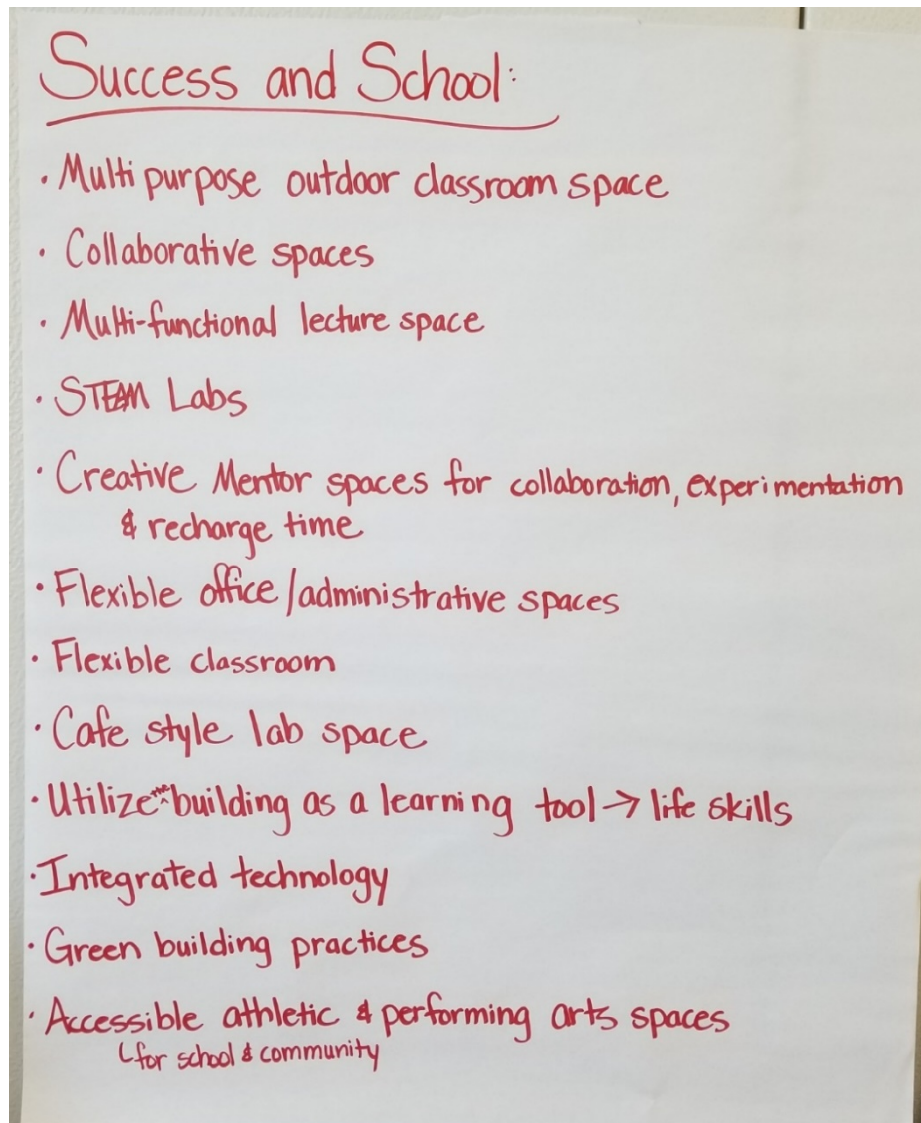 Success and School:
· Multi purpose outdoor classroom space
· Collaborative spaces
· Multi-functional lecture space
· STEAM Labs
· Creative Mentor spaces for collaboration, experimentation
& recharge time
· Flexible office/administrative spaces
· Flexible classroom
· Cafe style lab space
· Utilize the building as a learning tool → life skills
· Integrated technology
· Green building practices
· Accessible athletic & performing arts spaces
for school & community